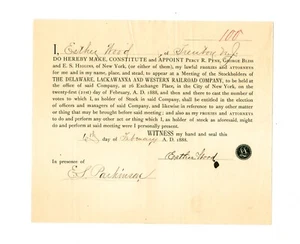 100
I, Esther Wood, of Trenton N.J.
DO HEREBY MAKE, CONSTITUTE AND APPOINT PERCY R. PYNE, GEORGE BLISS
and E. S. HIGGINS, of New York, (or either of them), my lawful PROXIES and ATTORNEYS
for me and in my name, place, and stead, to appear at a Meeting of the Stockholders of
THE DELAWARE, LACKAWANNA AND WESTERN RAILROAD COMPANY, to be held at
the office of said Company, at 26 Exchange Place, in the City of New York, on
the twenty-first (21st) day of February, A. D. 1888, and then and there to cast the number
of votes to which I, as holder of Stock in said Company, shall be entitled in the election
of officers and managers of said Company, and likewise in reference to any other matter
or thing that may be brought before said meeting; and also as my PROXIES and ATTORNEYS
to do and perform any other act or thing which I, as holder of stock as aforesaid, might
do and perform at said meeting were I personally present.
WITNESS my hand and seal this
6th day of February A. D. 1888.
Esther Wood
In presence of
E. S. Parkinson